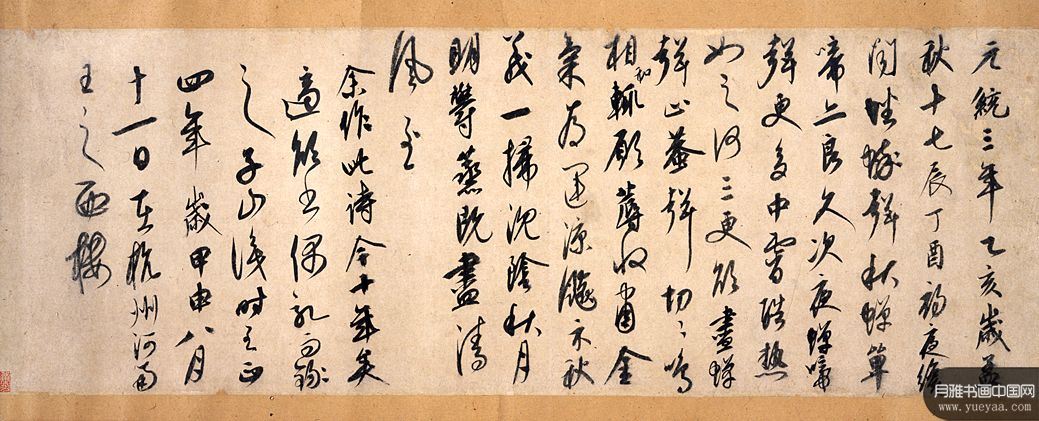 元統三年乙亥歲孟
秋十七辰丁酉初夜
聞蛙聲秋蟬單
啼良久次夜蟬啼
聲更多中宵酷熱
如之何三更欲盡蟬
聲止蛩聲切々鳴
相和輒願蓐收肅金
氣為運涼飈示秋
義一掃沈陰秋月
明鬱蒸既盡清
風至
余作此詩今十年矣
適欲書偶記而錄
之子山識時至正
四年歲甲申八月
十一日在杭州河南
王之西樓
月雅书画中国网
www.yueyaa.com